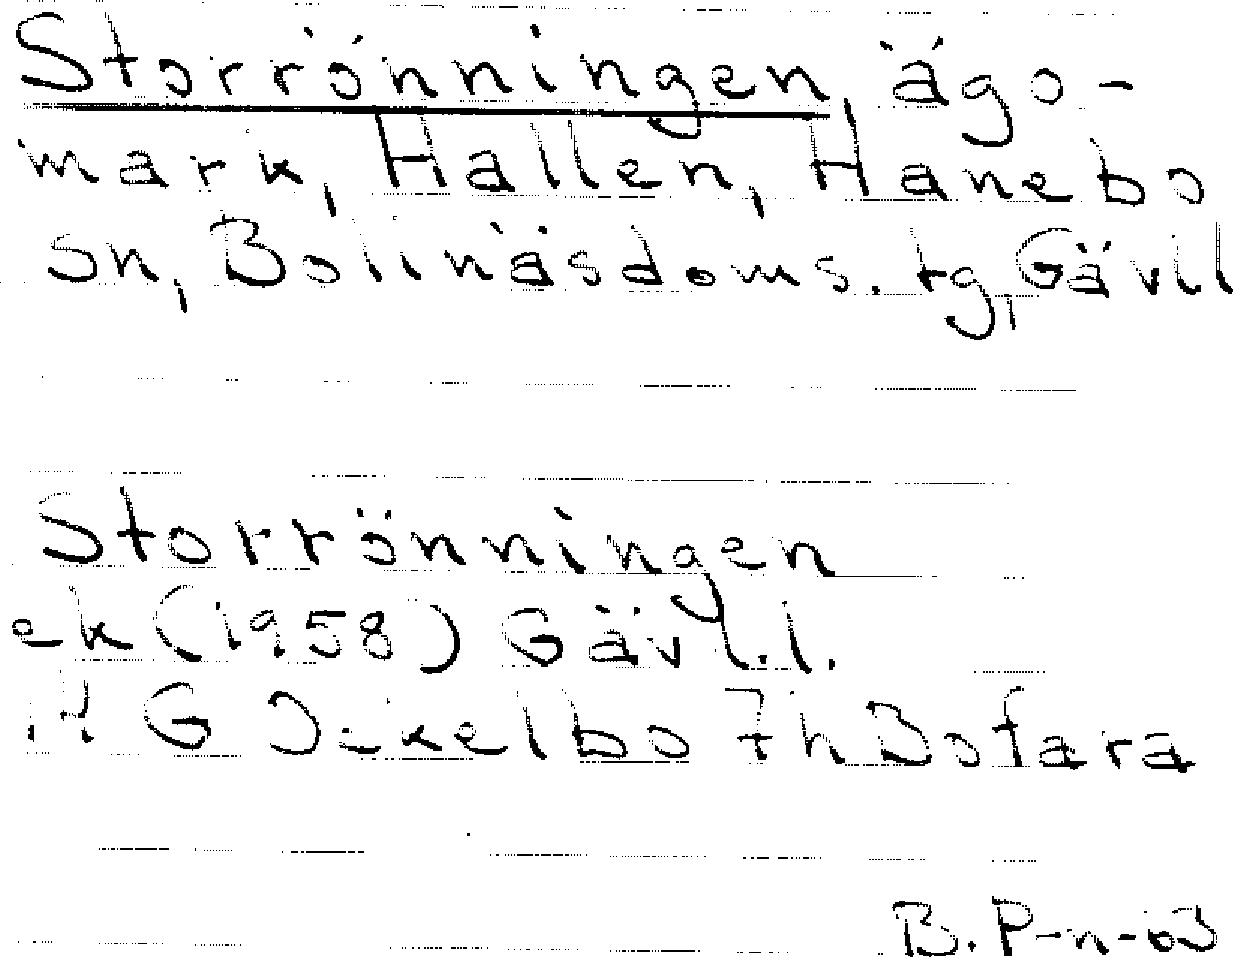 Storrönningen, ägo-
mark, Hallen, Hanebo
sn, Bollnäsdoms. tg, Gävl
Storrönningen
ek (1958) Gävl. l.
H G Ockelbo 7h Bofara
B. P-n-63